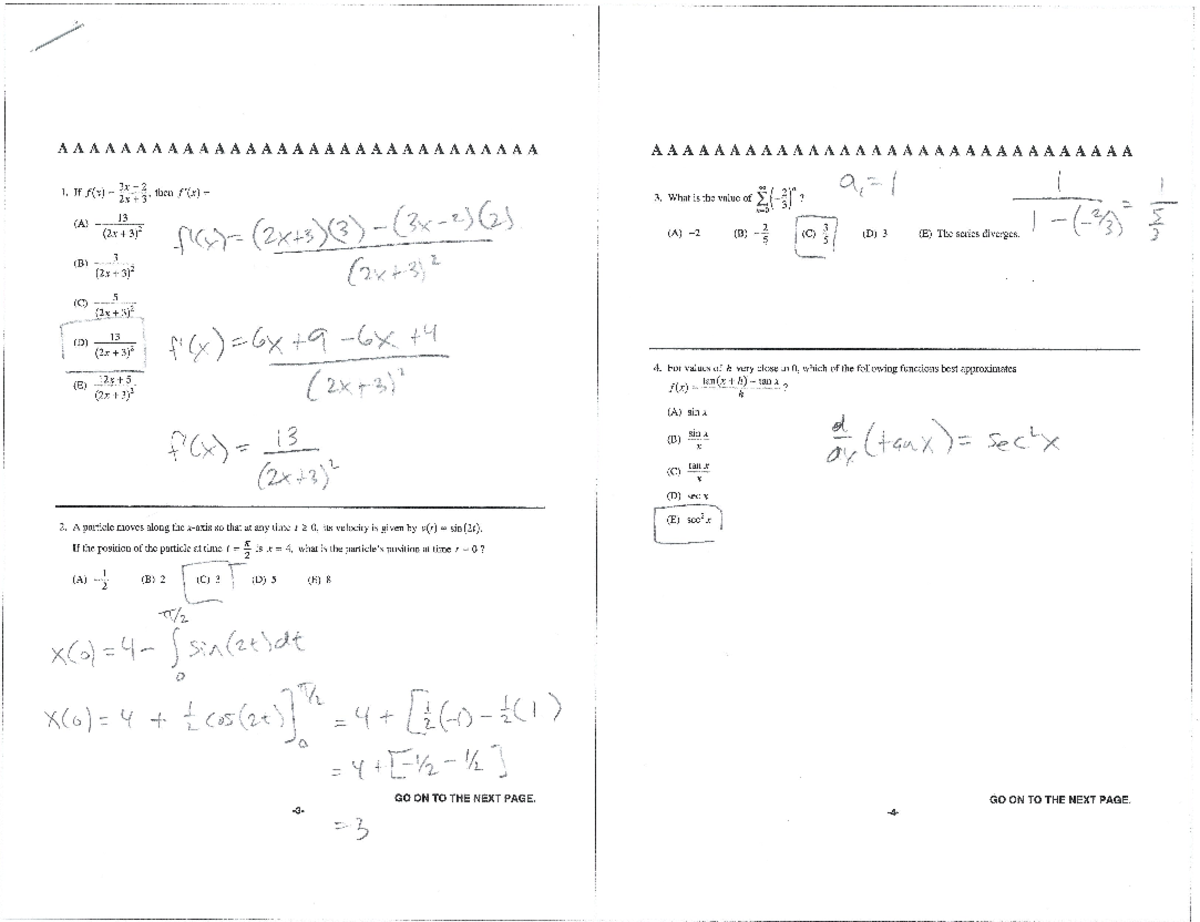 A A A A A A A A A A A A A A A A A A A A A A A A A A A A A A A
1. If f(x) = (3x − 2)/(2x + 3), then f′(x) =
(A) −13/(2x + 3)²
(B) 3/(2x + 3)²
(C) 5/(2x + 3)²
(D) 13/(2x + 3)²
(E) 12x + 5/(2x + 3)²
f'(x) = (2x+3)(3) − (3x−2)(2)
(2x+3)²
f'(x) = 6x + 9 − 6x + 4
(2x+3)²
f'(x) = 13
(2x+3)²
2. A particle moves along the x-axis so that at any time t ≥ 0, its velocity is given by v(t) = sin(2t).
If the position of the particle at time t = π/2 is x = 4, what is the particle's position at time t = 0 ?
(A) −1/2 (B) 2 (C) 3 (D) 5 (E) 8
x(0) = 4 − ∫₀^π/2 sin(2t)dt
x(0) = 4 + 1/2 cos(2t)]₀^π/2 = 4 + [1/2(-1) − 1/2(1)
= 4 + [-1/2 − 1/2]
= 3
GO ON TO THE NEXT PAGE.
-3-
A A A A A A A A A A A A A A A A A A A A A A A A A A A A A A A
3. What is the value of ∑_{n=0}^∞ (−2/3)ⁿ ?
(A) −2 (B) −2/5 (C) 3/5 (D) 3 (E) The series diverges.
a₁ = 1
1/(1 − (−2/3)) = 1/(5/3)
4. For values of h very close to 0, which of the following functions best approximates
f(x) = (tan(x + h) − tan x)/h ?
(A) sin x
(B) sin x/x
(C) tan x/x
(D) sec x
(E) sec² x
d/dx (tan x) = sec² x
GO ON TO THE NEXT PAGE.
-4-